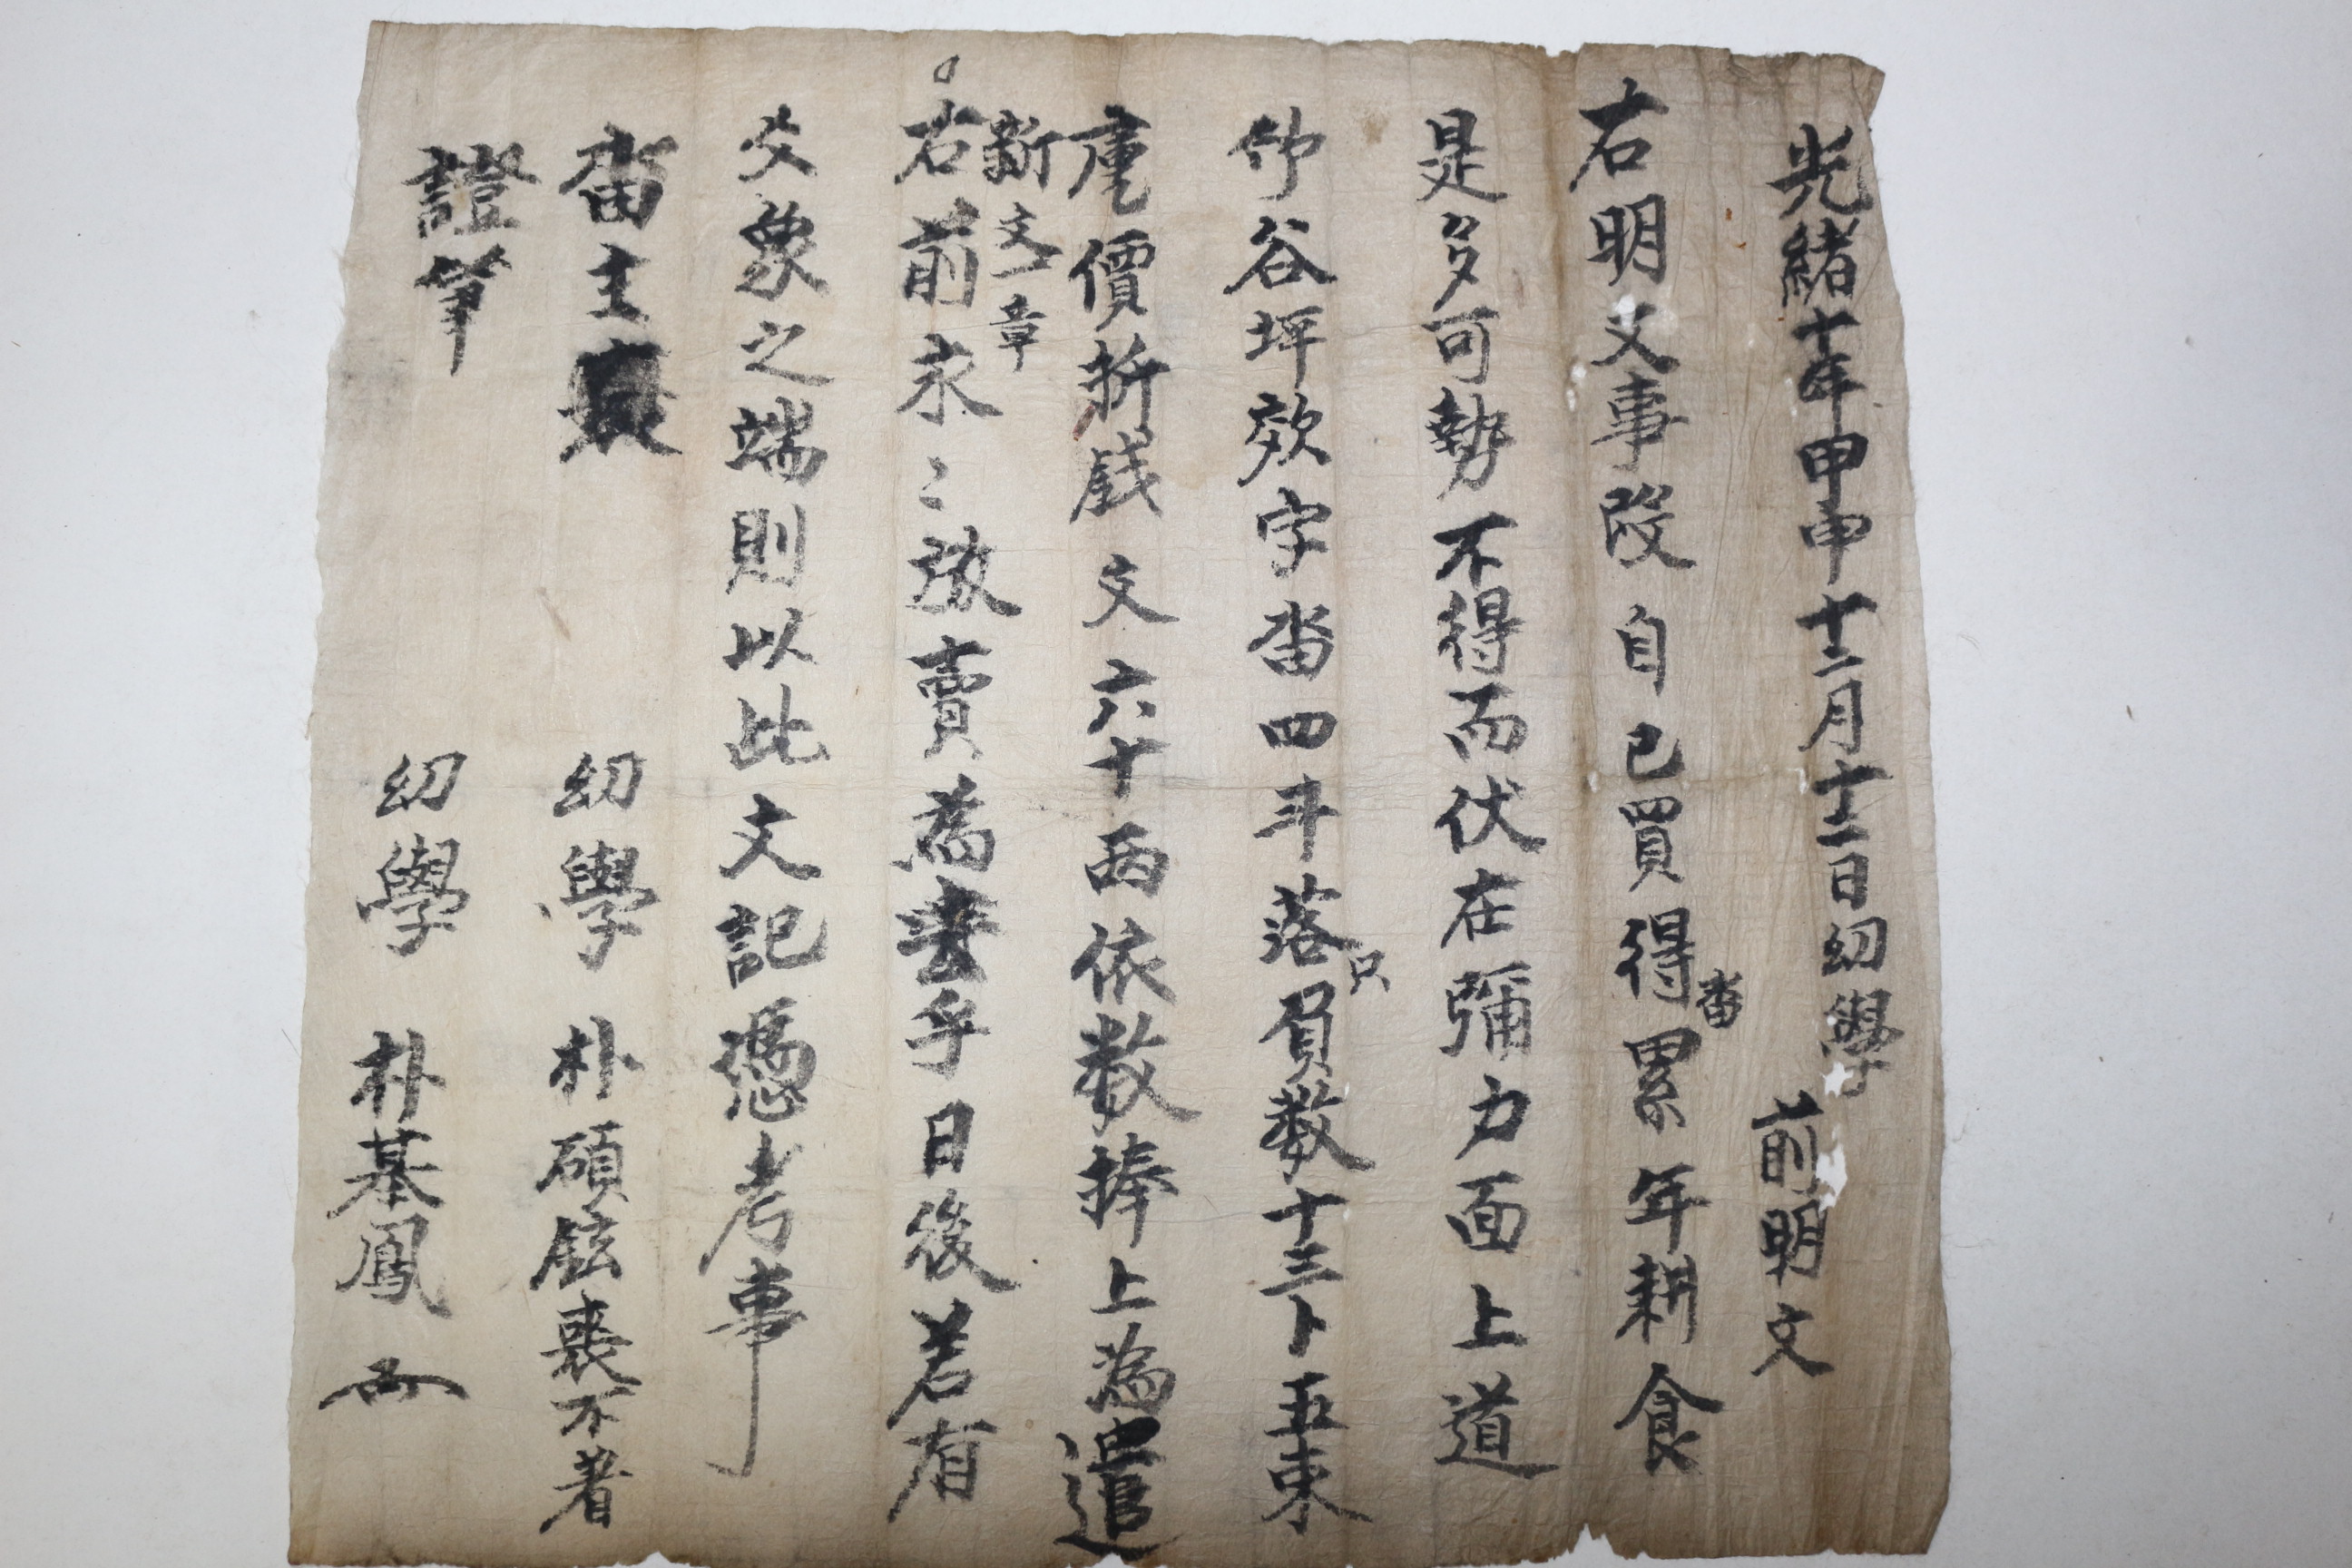 光緒十年甲申十二月十二日幼學 前明文
右明文事段自己買得畓累年耕食
是多可勢不得而伏在彌力面上道
谷坪效字畓四斗落只負數十三卜五束
庫價折錢文六十兩依數捧上為遣
新文一章
右前永々放賣為去乎日後若有
爻象之端則以此文記憑考事
畓主 幼學 朴碩鉉喪不着
證筆 幼學 朴基鳳